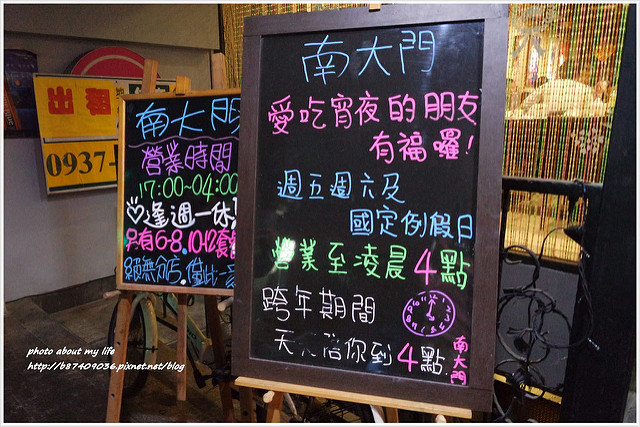 南大門
愛吃宵夜的朋友
有福囉!
週五週六及
國定例假日
營業至凌晨4點
跨年期間
天 陪你到4點
南大門
南大門
營業時間
17:00~04:00
逢週一休
只有6.8.10.12套
絕無分店.僅此一
出租
0937-
photo about my life
http://b87409036.pixnet.net/blog